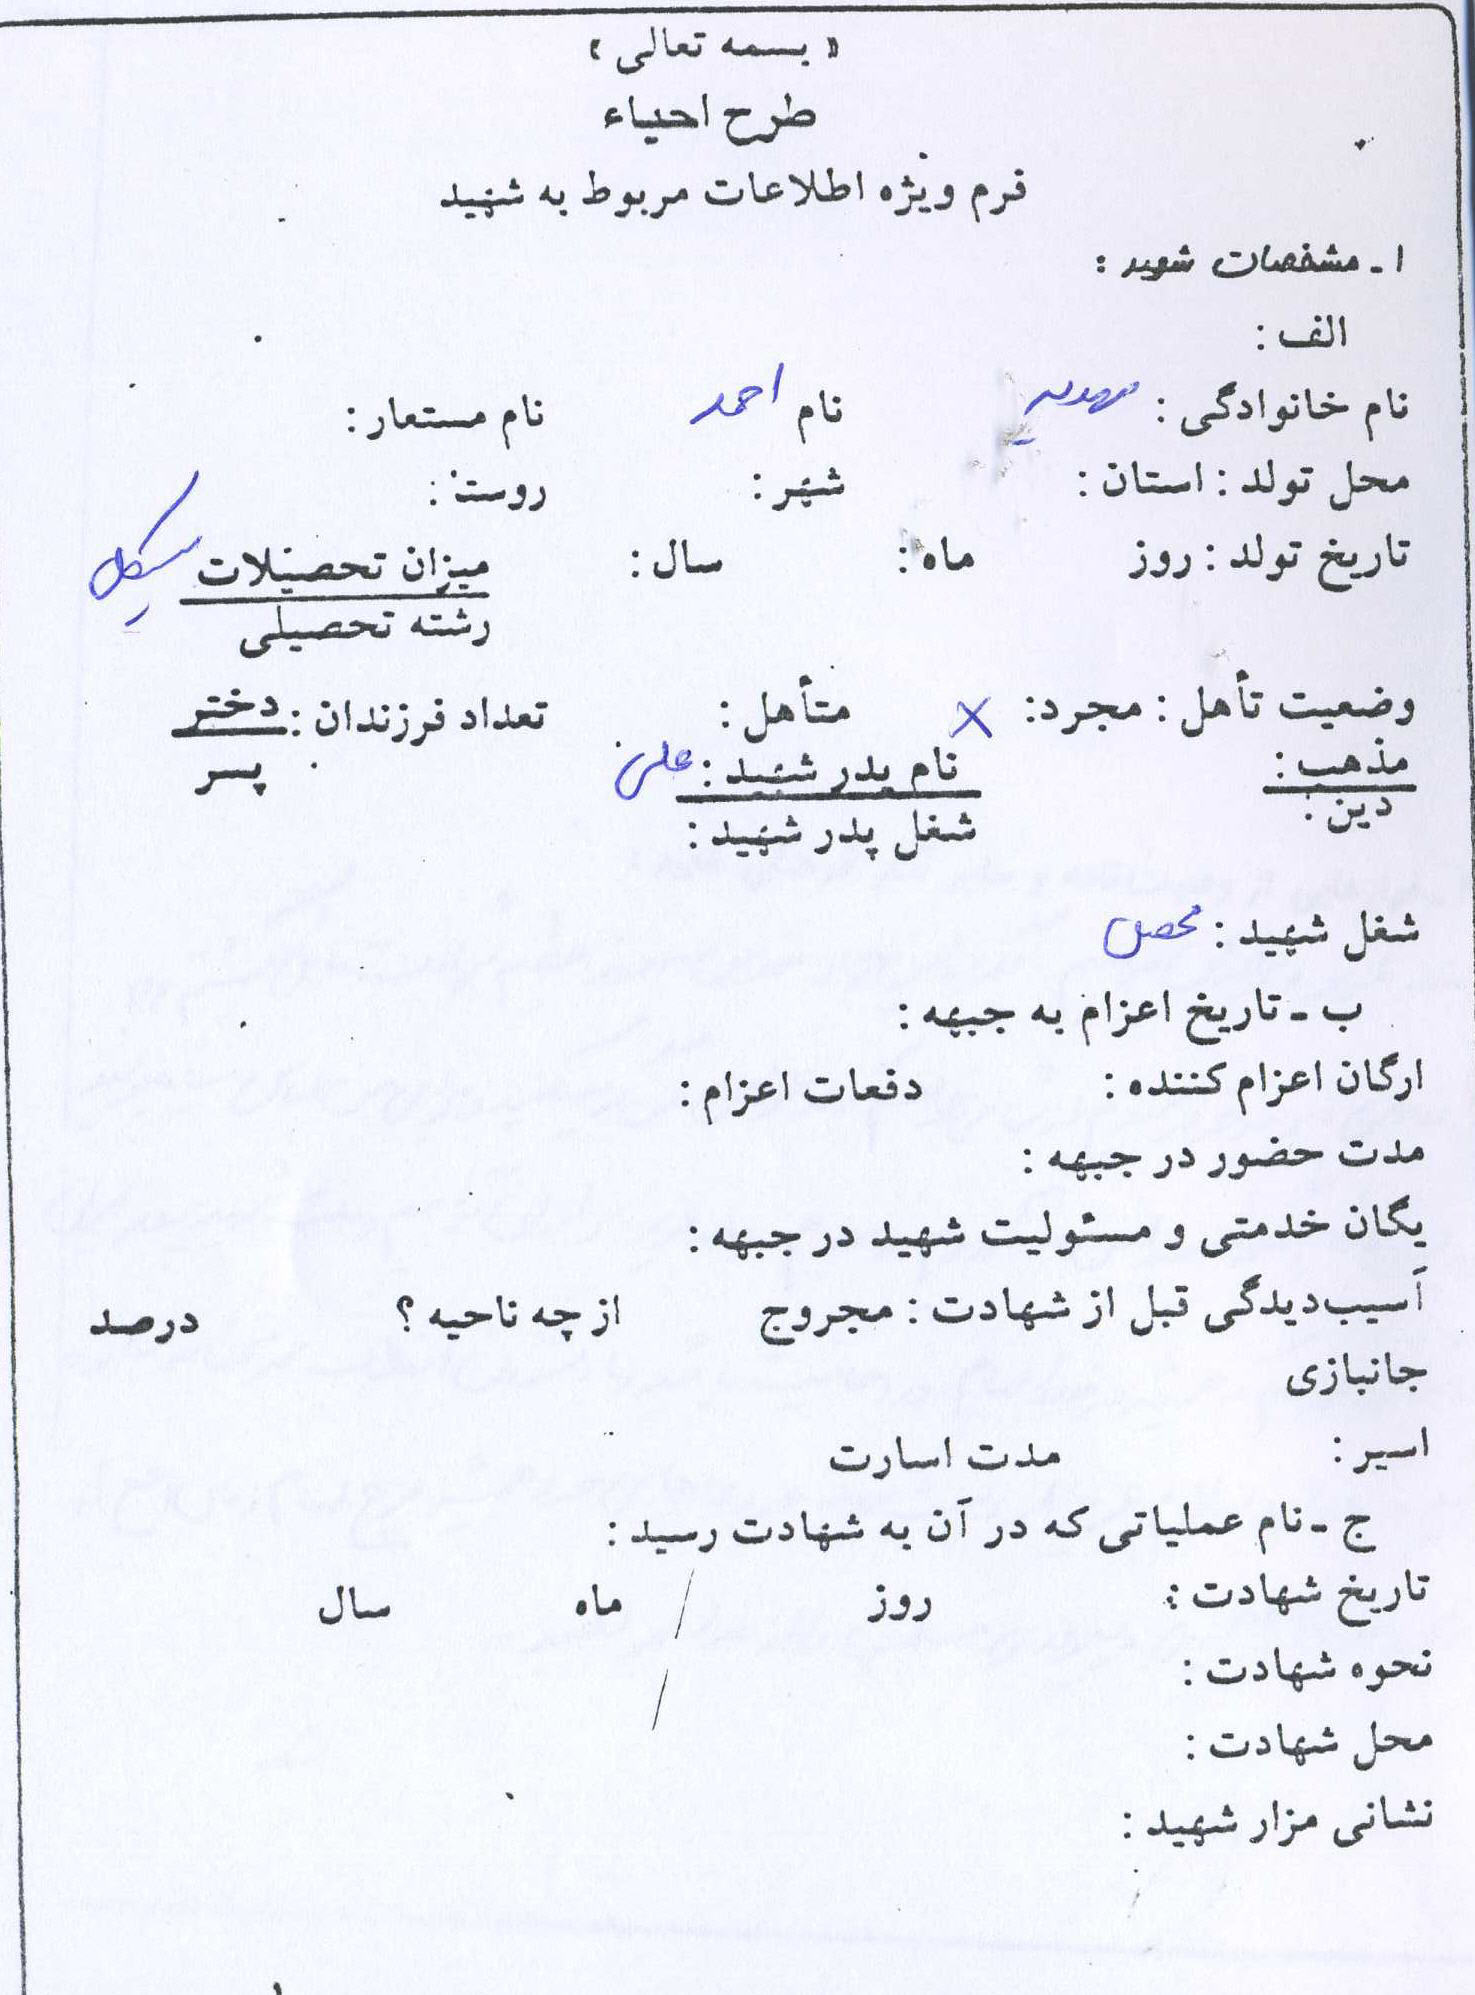 « بسمه تعالی »
طرح احیاء
فرم ویژه اطلاعات مربوط به شهید
۱ـ مشخصات شهید :
الف :
نام خانوادگی : نام احمد نام مستعار:
محل تولد : استان : شهر : روست :
تاریخ تولد : روز ماه : سال : میزان تحصیلات سیکل
رشته تحصیلی
وضعیت تأهل : مجرد: × متأهل : تعداد فرزندان : دختر
مذهب : نام پدر شهید : علی پسر
دین : شغل پدر شهید :
شغل شهید : محصل
ب ـ تاریخ اعزام به جبهه :
ارگان اعزام کننده : دفعات اعزام :
مدت حضور در جبهه :
یگان خدمتی و مسئولیت شهید در جبهه :
آسیب‌دیدگی قبل از شهادت : مجروح از چه ناحیه ؟ درصد
جانبازی
اسیر : مدت اسارت
ج ـ نام عملیاتی که در آن به شهادت رسید :
تاریخ شهادت : روز ماه سال
نحوه شهادت :
محل شهادت :
نشانی مزار شهید :
۱